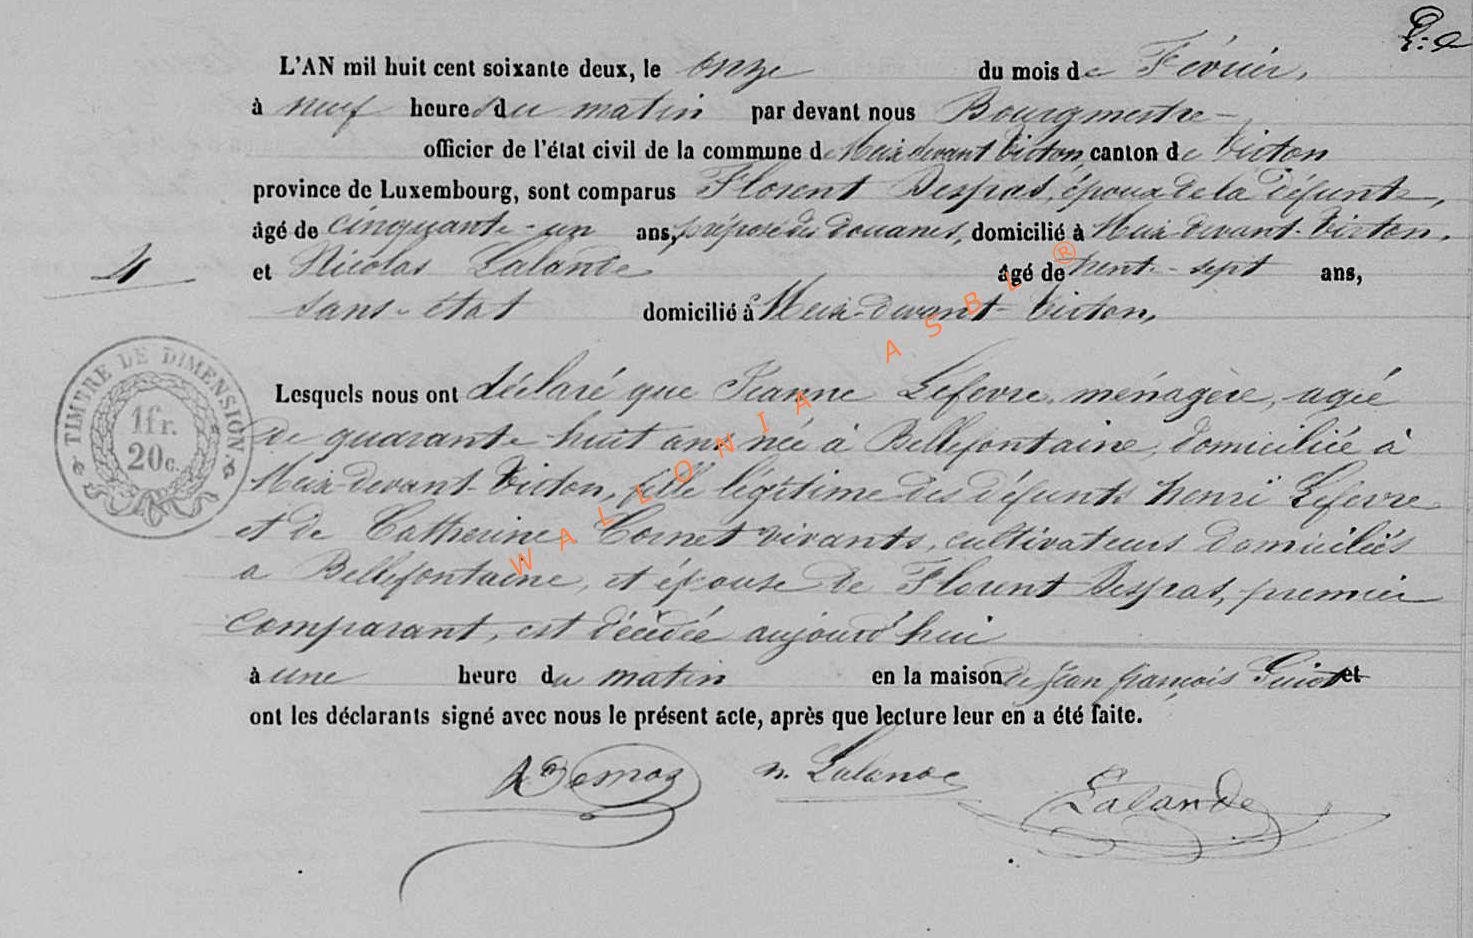 L'AN mil huit cent soixante deux, le onze du mois de Février,
à neuf heures du matin par devant nous Bourgmestre
officier de l'état civil de la commune de Meix-devant Virton, canton de Virton
province de Luxembourg, sont comparus Florent Despas, époux de la défunte,
âgé de cinquante-un ans, préposé des douanes, domicilié à Meix-devant-Virton,
4
et Nicolas Lalande âgé de trent-sept ans,
sans-état domicilié à Meix-devant-Virton,
TIMBRE DE DIMENSION.
1 fr.
20c.
Lesquels nous ont déclaré que Jeanne Lefevre, ménagère, agée
de quarante huit ans née à Bellefontaine, domiciliée à
Meix-devant-Virton, fille légitime des défunts henri Lefevre
et de Catherine Cornet vivants, cultivateurs domiciliés
a Bellefontaine, et épouse de Florent Despas, premier
comparant, est décédée aujourd'hui
à une heure du matin en la maison de Jean françois et
ont les déclarants signé avec nous le présent acte, après que lecture leur en a été faite.
n. Lalande
Lalande
WALLONIA ASBL ®